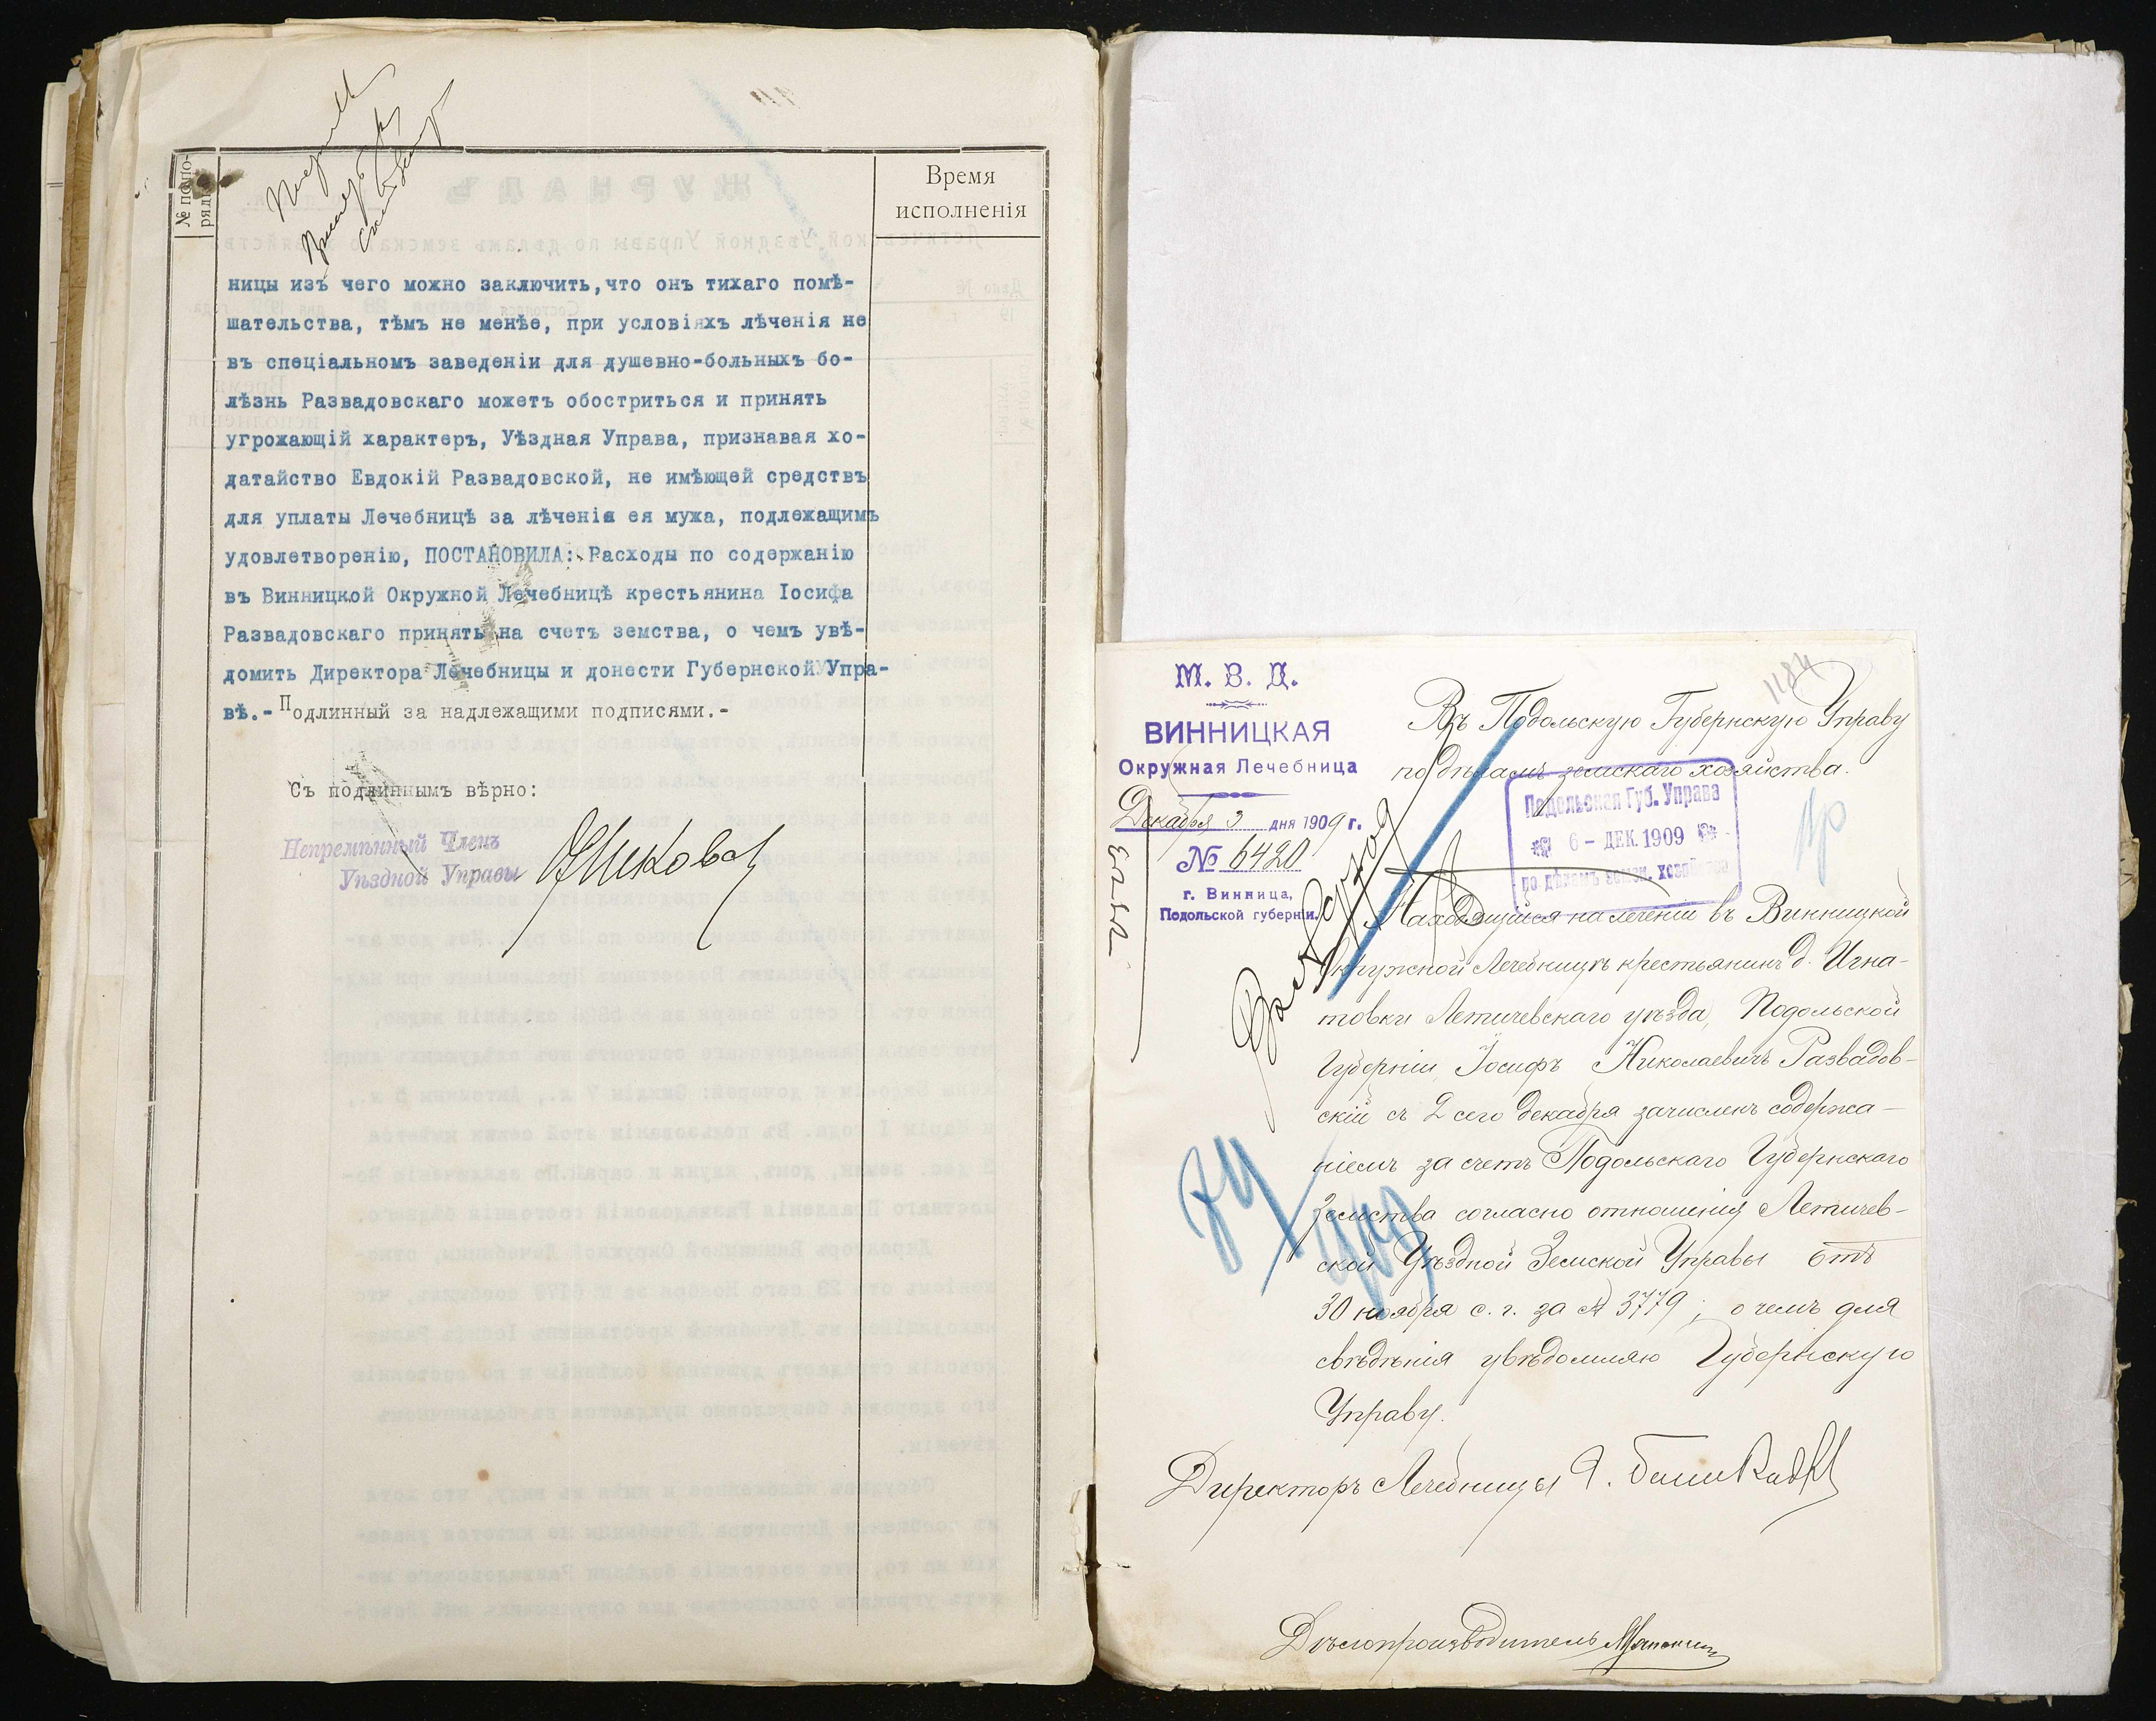 № по по-
рядку
Время
исполненія
ницы изъ чего можно заключить,что онъ тихаго помѣ-
шательства, тѣмъ не менѣе, при условіяхъ лѣченія не
въ спеціальномъ заведеніи для душевно-больныхъ бо-
лѣзнь Развадовскаго можетъ обостриться и принять
угрожающій характеръ, Уѣздная Управа, признавая хо-
датайство Евдокій Развадовской, не имѣющей средствъ
для уплаты Лечебницѣ за лѣченіе ея мужа, подлежащимъ
удовлетворенію, ПОСТАНОВИЛА: Расходы по содержанію
въ Винницкой Окружной Лечебницѣ крестьянина Іосифа
Развадовскаго принять на счетъ земства, о чемъ увѣ-
домить Директора Лечебницы и донести Губернской Упра-
вѣ.- Подлинный за надлежащими подписями.-
Съ подлиннымъ вѣрно:
Непремѣнный Членъ
Уѣздной Управы
М. В. Д.
ВИННИЦКАЯ
Окружная Лечебница
Декабря 3 дня 1909 г.
№ 6420
г. Винница,
Подольской губерніи.
1184
Въ Подольскую Губернскую Управу
по дѣламъ земскаго хозяйства.
Подольская Губ. Управа
6 - ДЕК. 1909
по дѣламъ земск. хозяйства
Находящійся на леченіи въ Винницкой
Окружной Лечебницѣ крестьянинъ д. Игна-
товки Летичевскаго уѣзда, Подольской
Губерніи, Іосифъ Николаевичъ Развадов-
скій съ 2 сего декабря зачисленъ содержа-
ніемъ за счетъ Подольскаго Губернскаго
Земства согласно отношенія Летичев-
ской Уѣздной Земской Управы отъ
30 ноября с. г. за № 3779; о чемъ для
свѣдѣнія увѣдомляю Губернскую
Управу.
Директоръ Лечебницы
Дѣлопроизводитель